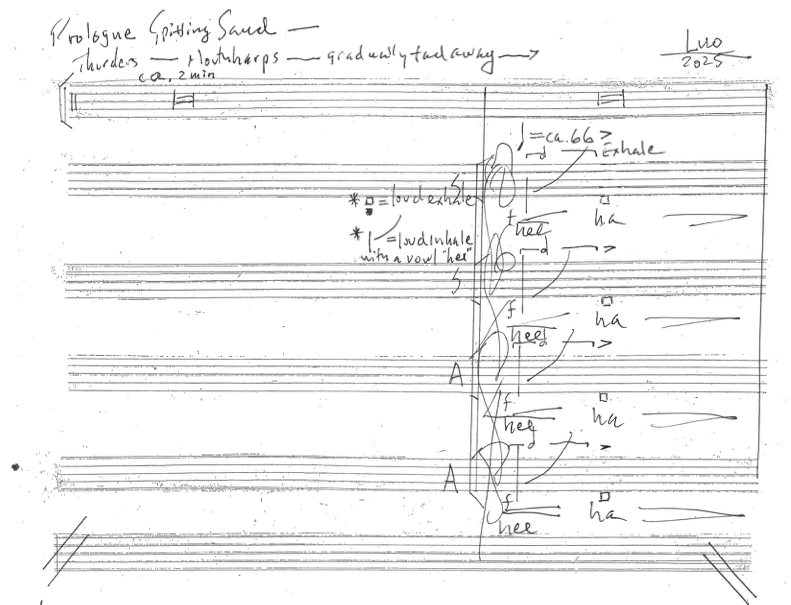 Prologue Spitting Sand —
Thunders — Mouthharps — gradually fad away →
ca. 2 min
Luo
2025
♩=ca.66 >
Exhale
S
* □ = loud exhale
f
hee
ha
* | = loud inhale
with a vowl "hee"
>
S
f
hee
ha
>
A
f
hee
ha
>
A
f
hee
ha